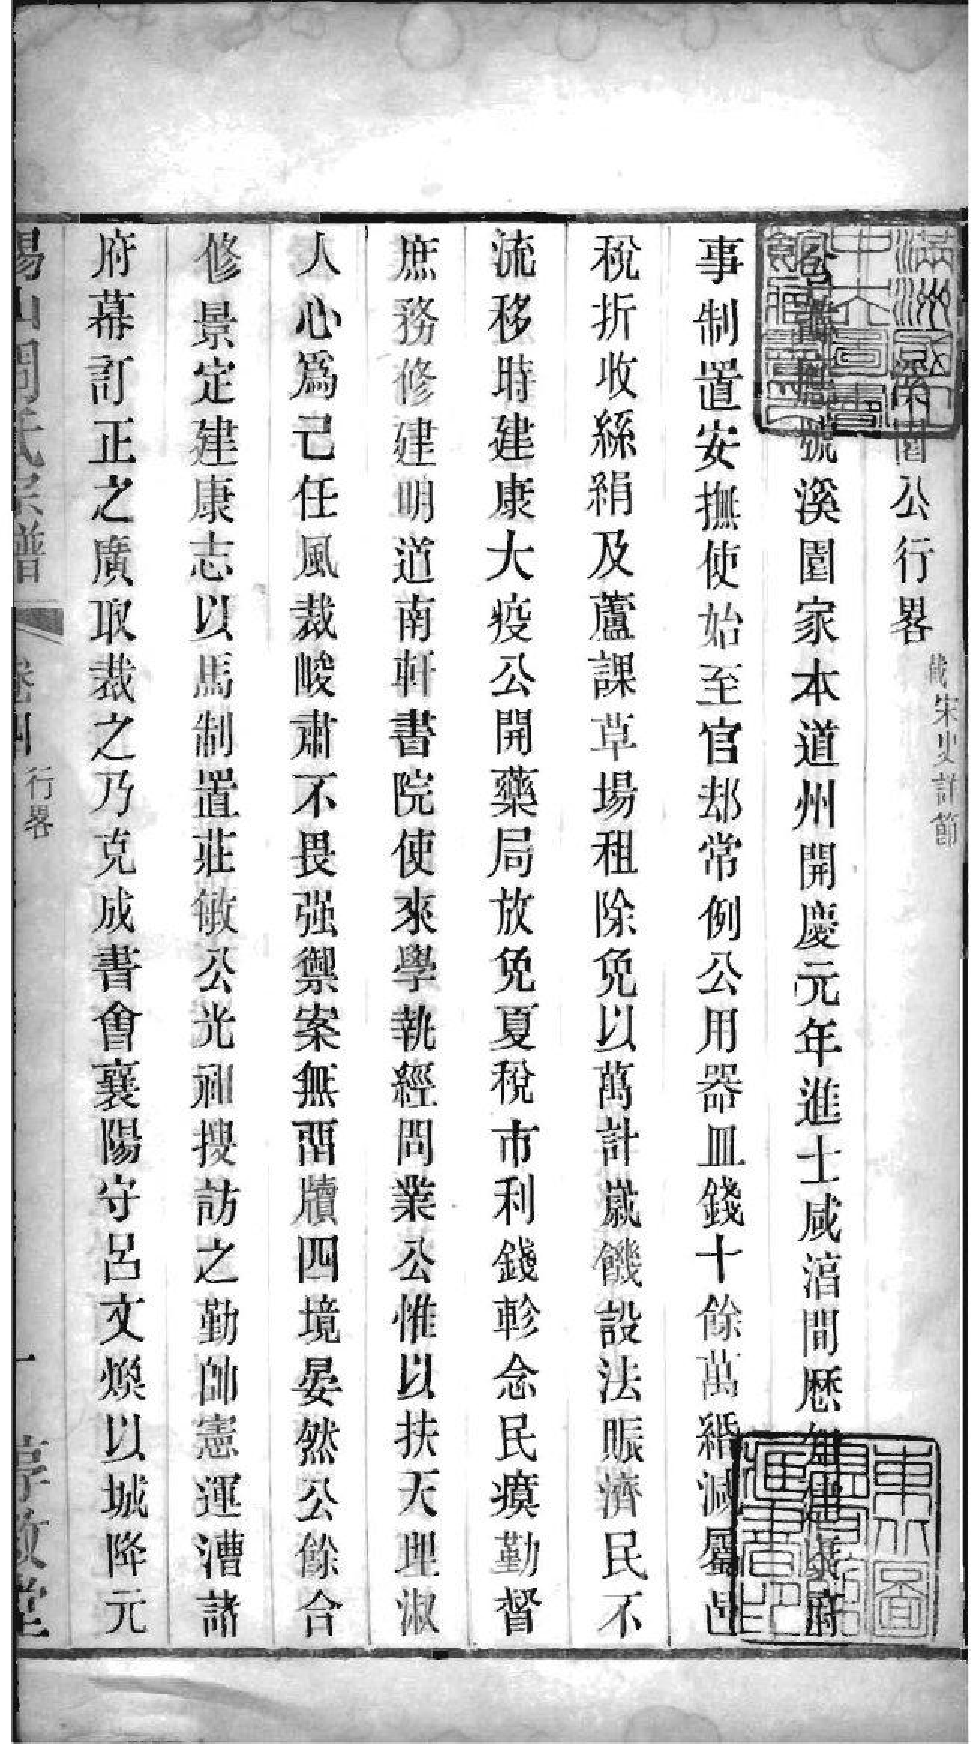 溪園公行畧 載宋史計節
公諱應合號溪園家本道州開慶元年進士咸淳間歷知建康府
事制置安撫使始至官却常例公用器皿錢十餘萬緡減屬邑
稅折收絲絹及蘆課草場租除免以萬計歲饑設法賑濟民不
流移時建康大疫公開藥局放免夏稅市利錢軫念民瘼勤督
庶務修建明道南軒書院使來學執經問業公惟以扶天理淑
人心爲己任風裁峻肅不畏强禦案無畱牘四境晏然公餘合
修景定建康志以馬制置莊敏公光祖搜訪之勤帥憲運漕諸
府幕訂正之廣取裁之乃克成書會襄陽守呂文煥以城降元
錫山周氏宗譜 卷四 行畧 一 享敘堂